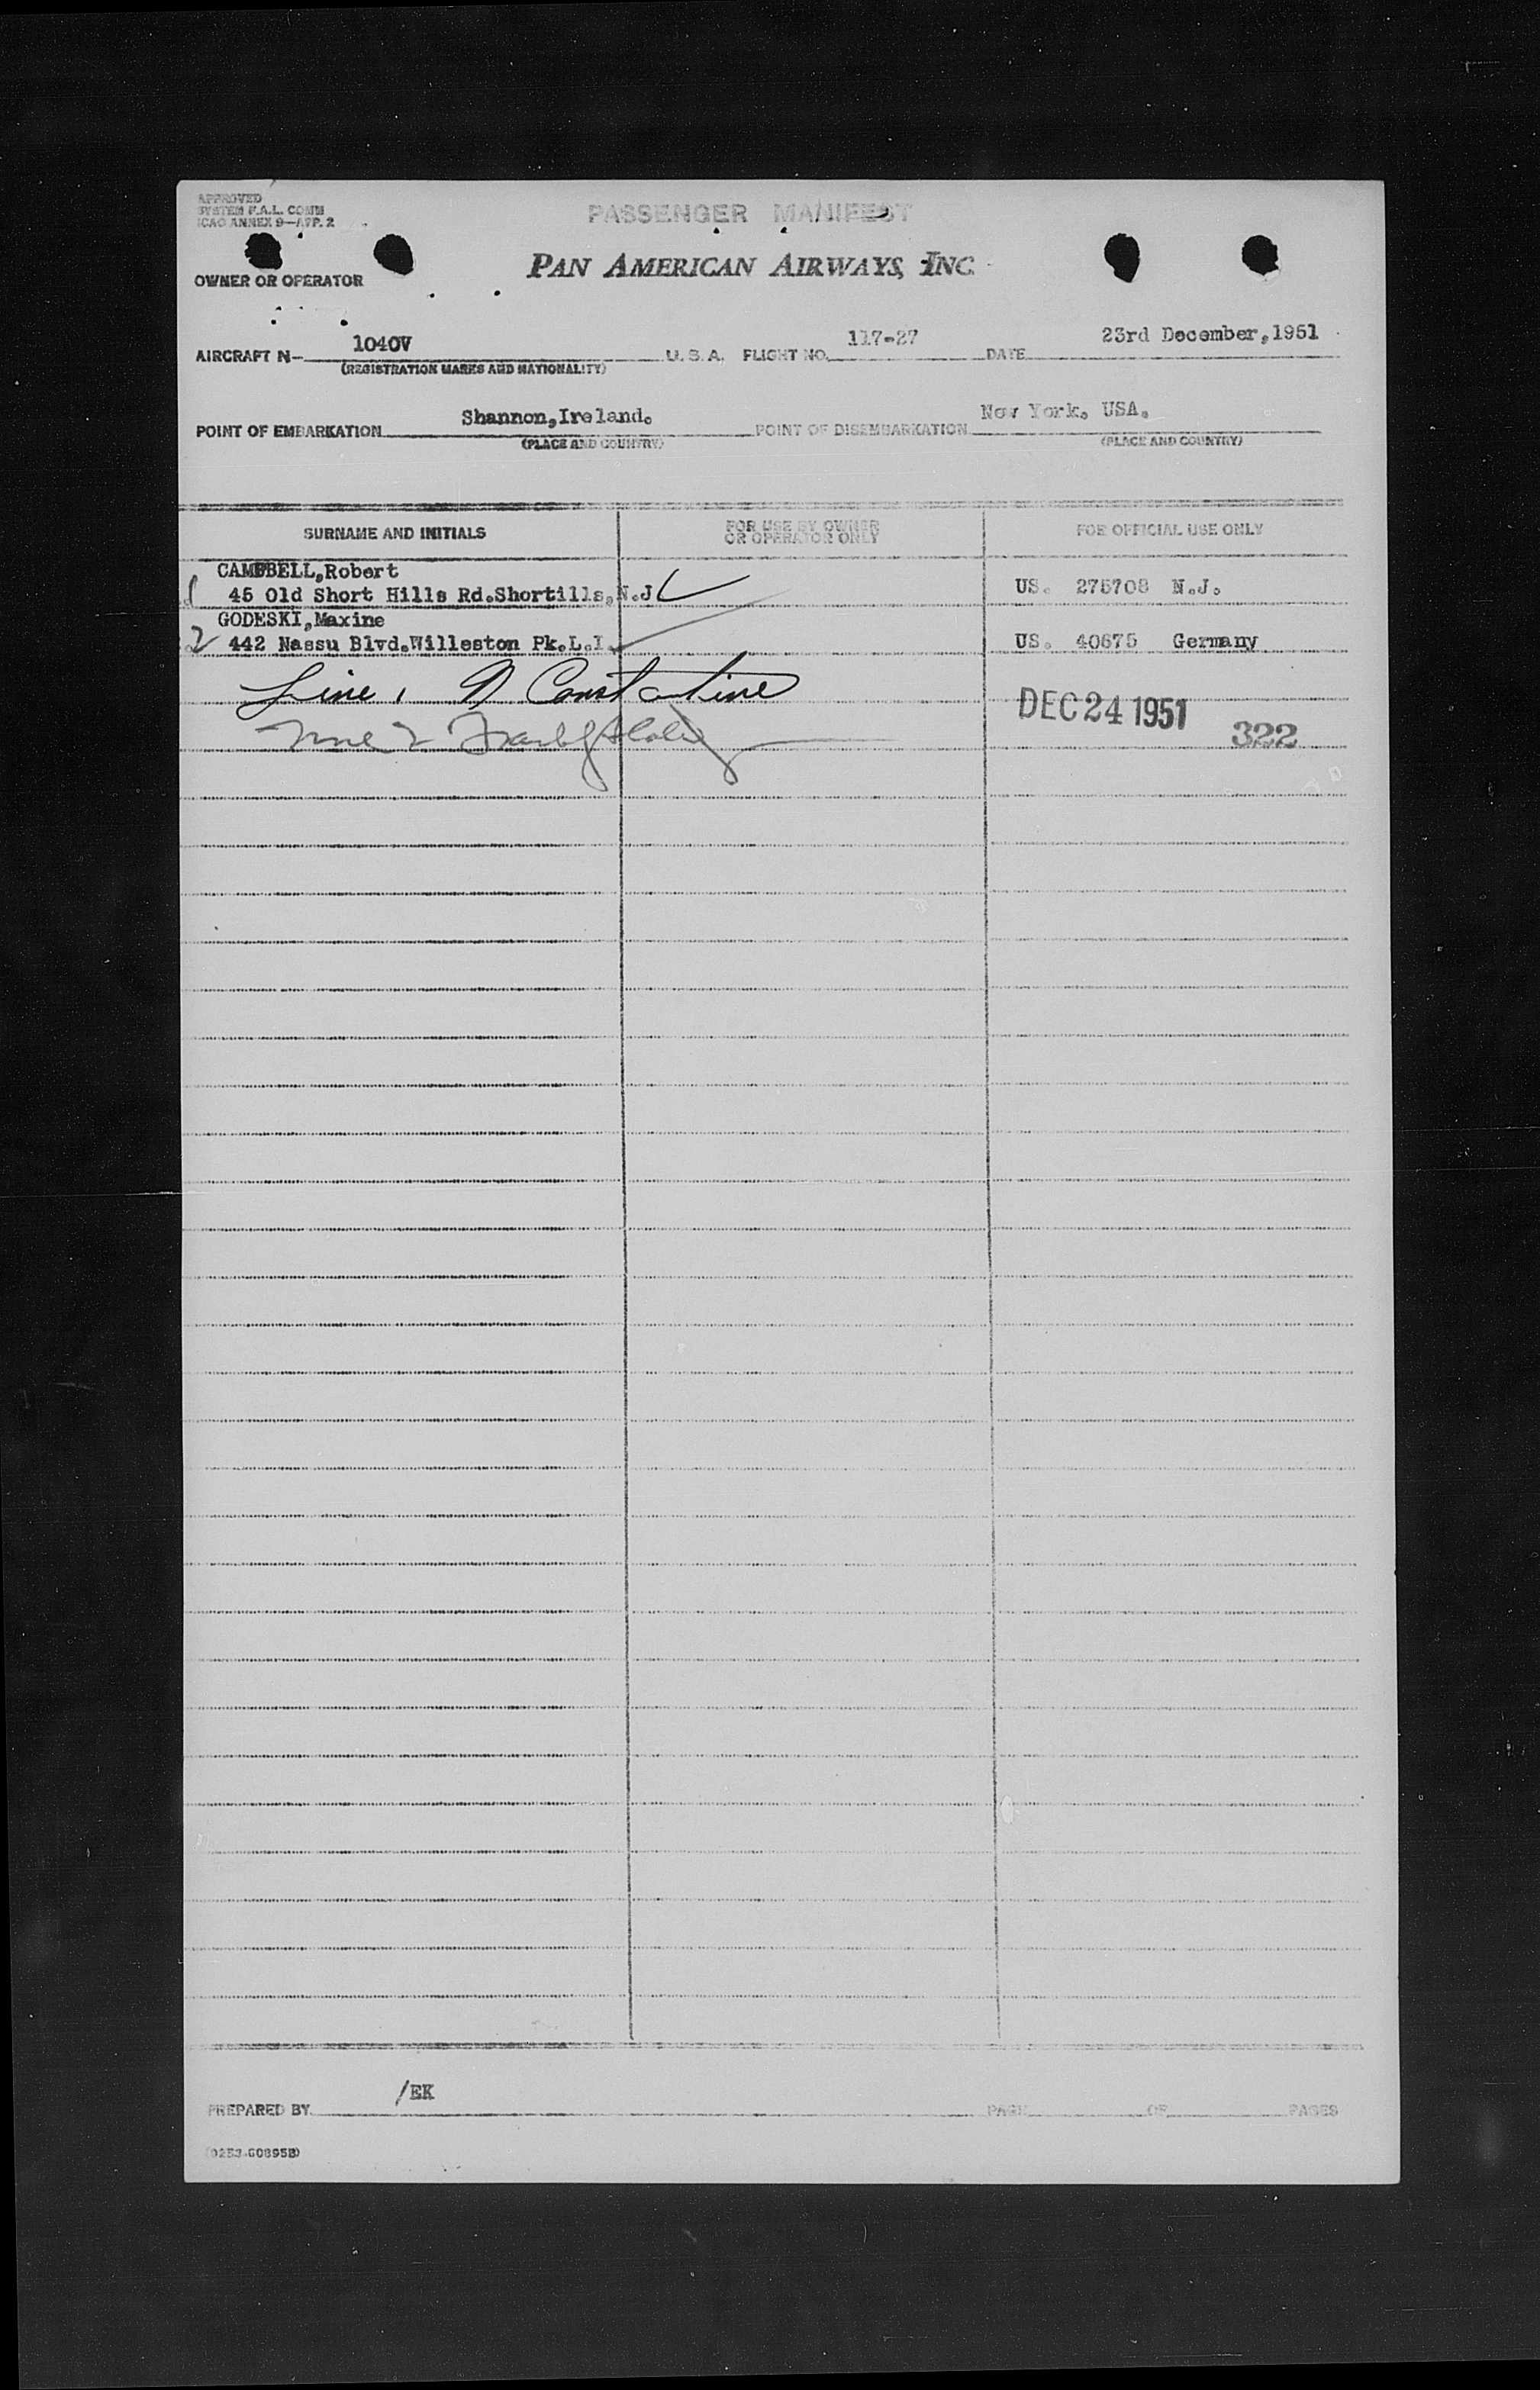 APPROVED
SYSTEM F.A.L. COMM
ICAO ANNEX 9—APP. 2
PASSENGER MANIFEST
PAN AMERICAN AIRWAYS, INC.
OWNER OR OPERATOR
AIRCRAFT N- 1040V U. S. A. FLIGHT NO. 117-27 DATE 23rd December,1951
(REGISTRATION MARKS AND NATIONALITY)
POINT OF EMBARKATION Shannon,Ireland. POINT OF DISEMBARKATION New York. USA.
(PLACE AND COUNTRY) (PLACE AND COUNTRY)
SURNAME AND INITIALS FOR USE BY OWNER OR OPERATOR ONLY FOR OFFICIAL USE ONLY
CAMPBELL,Robert
1 45 Old Short Hills Rd.Shortills,N.J US. 275708 N.J.
GODESKI,Maxine
2 442 Nassu Blvd.Willeston Pk.L.I. US. 40675 Germany
Line 1 Constantine
DEC 24 1951
Line 2 322
PREPARED BY /EK PAGE OF PAGES